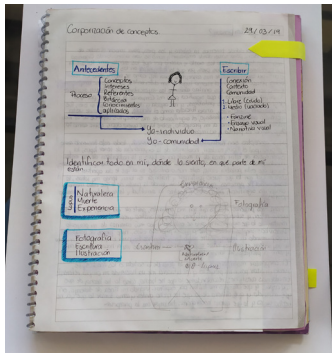 Corporización de conceptos
29/03/19
Antecedentes
Proceso
Conceptos
Intereses
Referentes
Bitácora
Conocimientos
aplicados
Escribir
Conexión
Contexto
Comunidad
Fanzine
Ensayo visual
Narrativa visual
Yo-individuo
Yo-comunidad
Identificar todo en mi, dónde lo siento, en que parte de mi
están.
Naturaleza
Muerte
Experiencia
Fotografía
Escritura
Ilustración
Fotografía